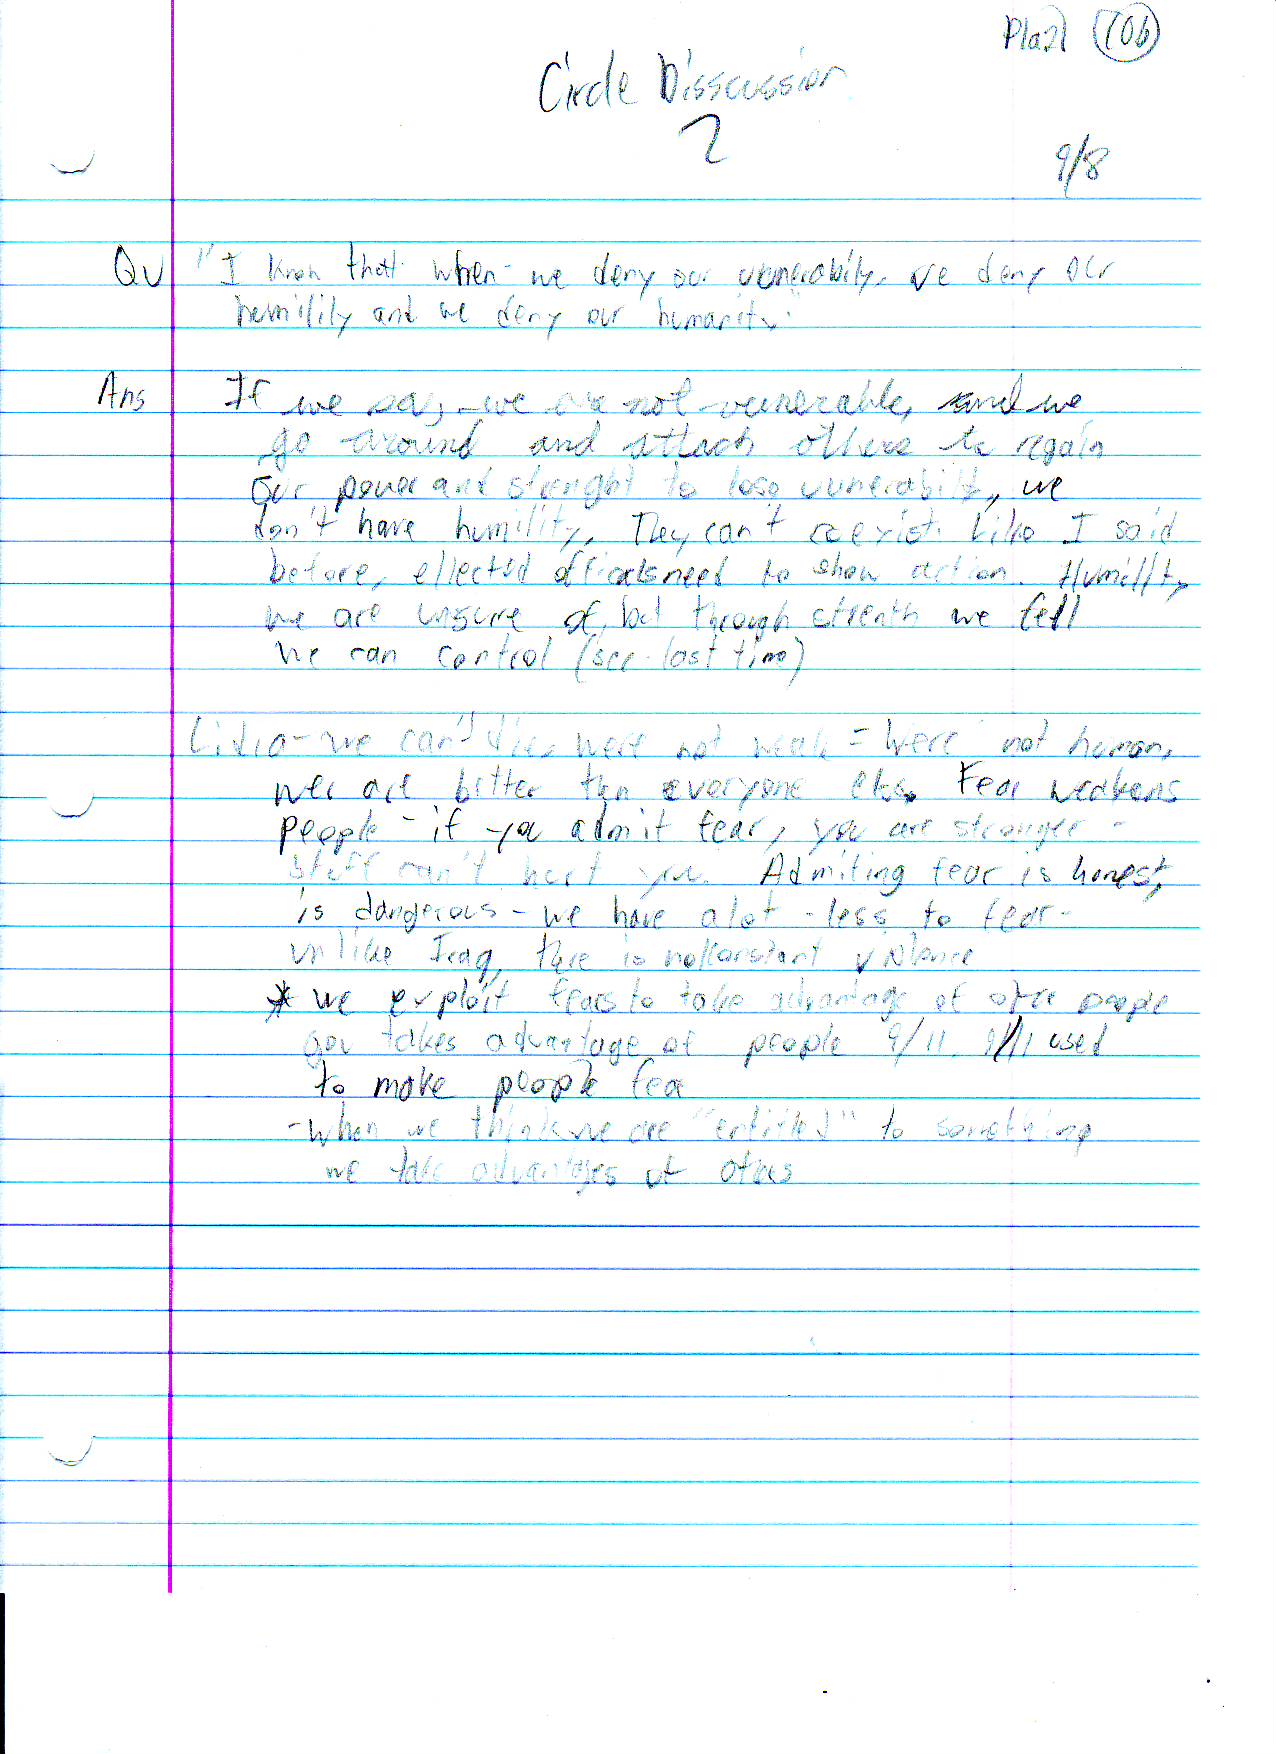 Pla21 10b
Circle Disscussion
2
9/8
Qu "I know that when we deny our vunerabily, we deny our
humilily and we deny our humanity."
Ans If we say we are not vunerable, and we
go around and attack others to regain
our power and strenght to lose vunerabilty, we
don't have humility. They can't coexist. Like I said
before, ellected officals need to show action. Humillty
we are unsure of, but through strenth we fell
we can control (see last time)
Lidia - we can't die, were not weak = were not human,
we are better than everyone els. Fear weakens
people - if you admit fear, you are stronger -
stuff can't hurt you. Admiting fear is honest,
is dangerous - we have alot less to fear -
unlike Iraq, there is not constant violence
* we exploit fears to take advantage of other people
gov takes advantage of people 9/11. 9/11 used
to make people fear
- When we think we are "entitled" to something
we take advantages of others